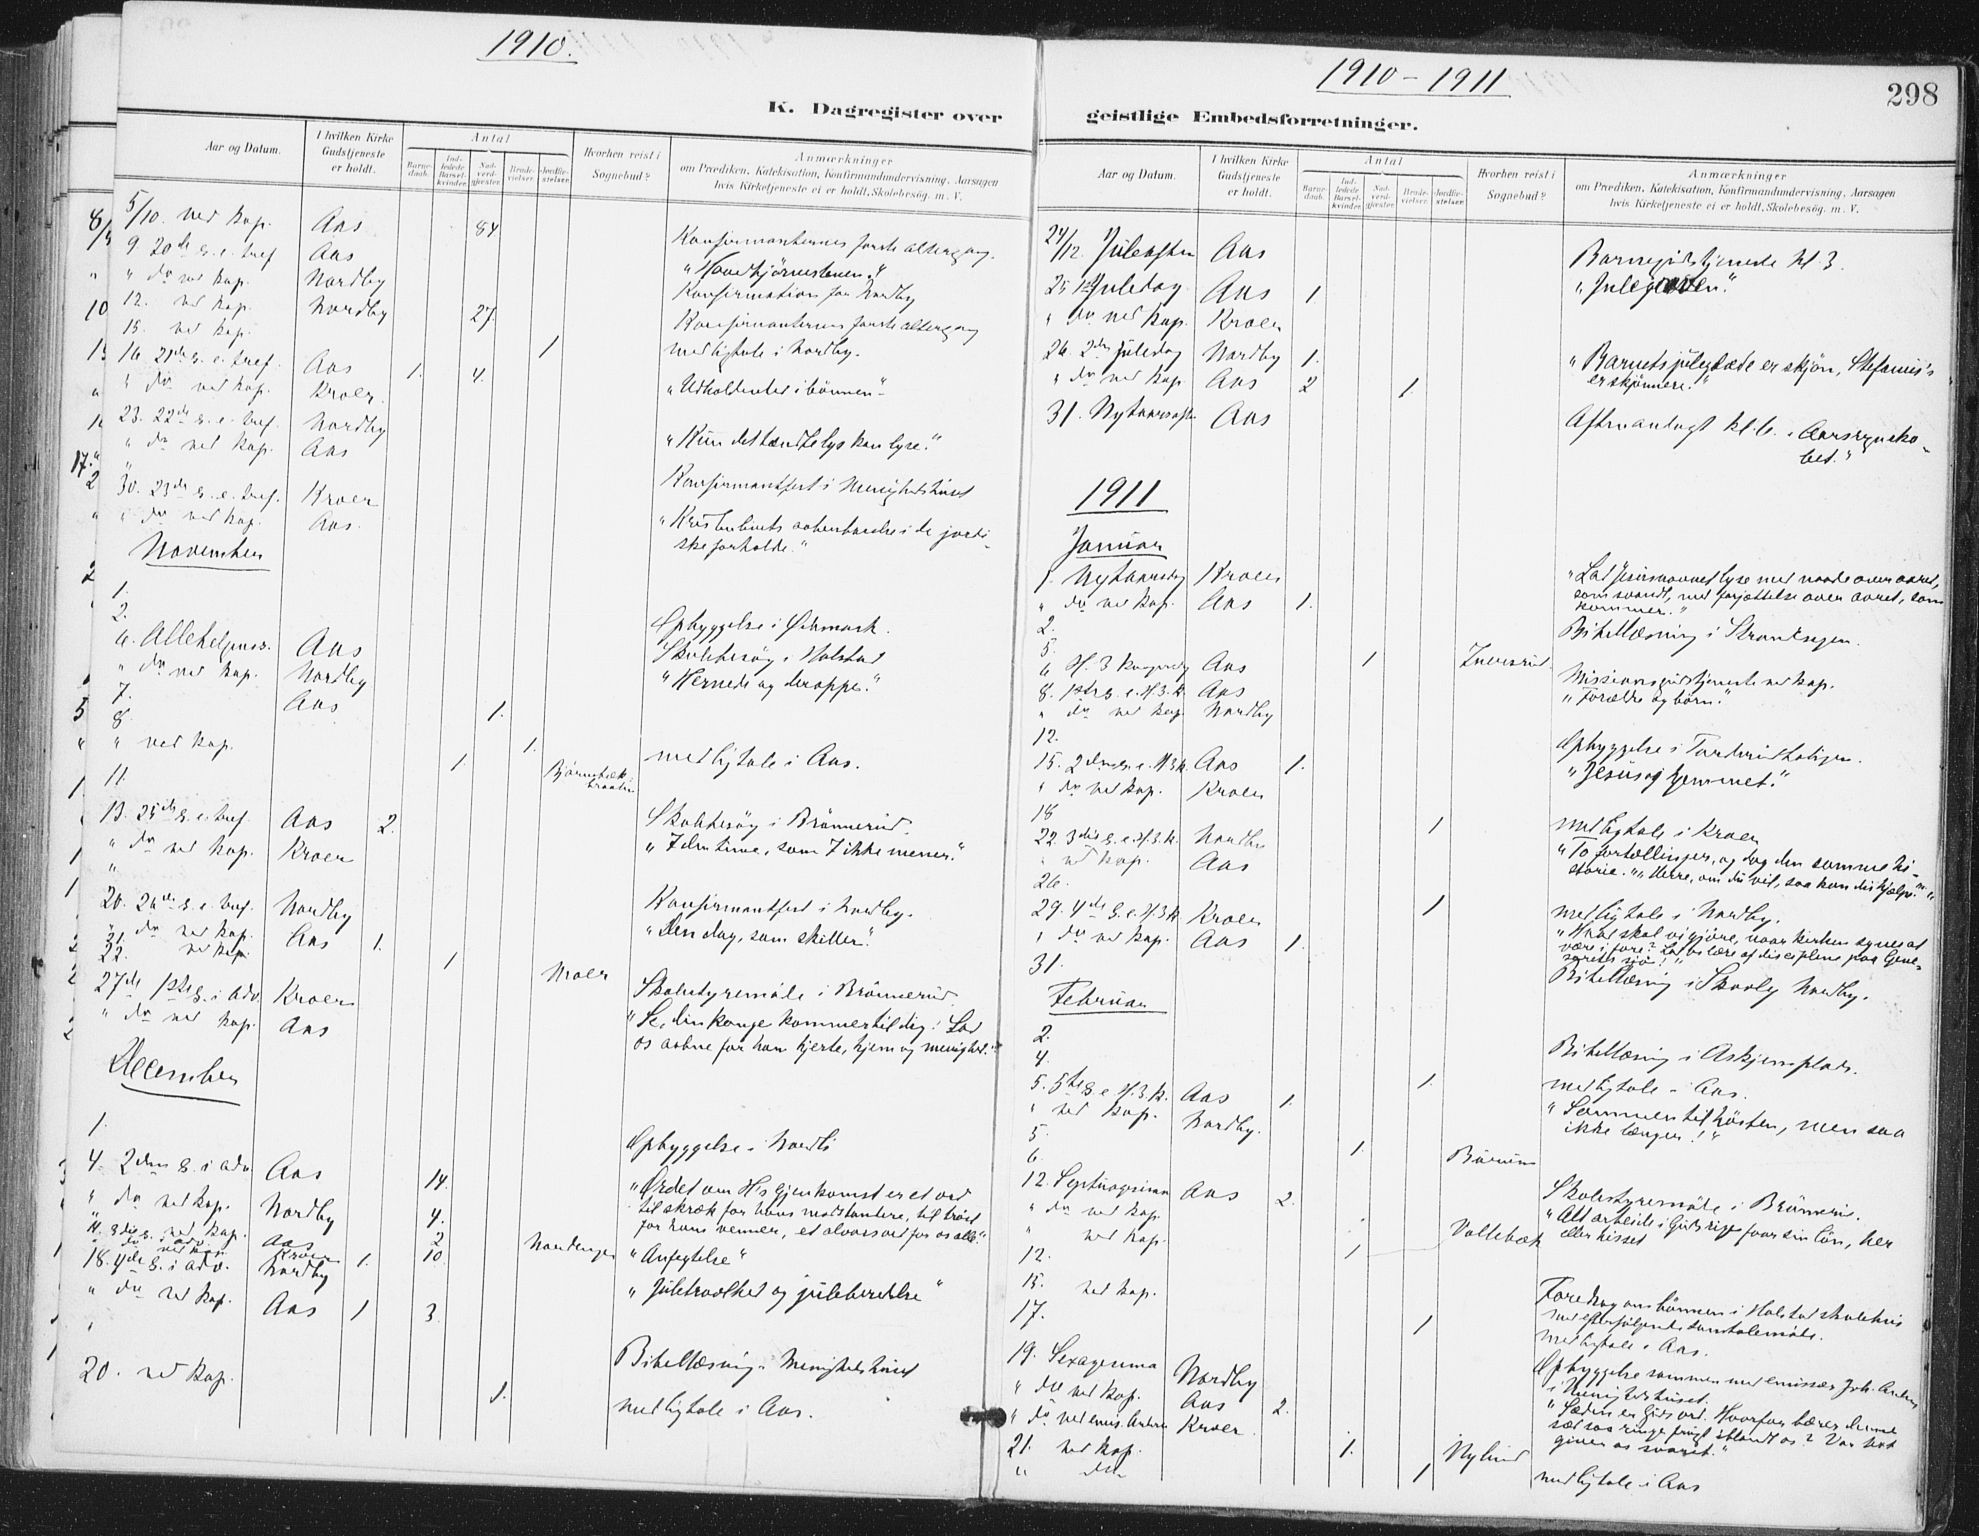 1910.
K. Dagregister over
Aar og Datum.
I hvilken Kirke Gudstjeneste er holdt.
Antal
Barnedaab.
Indledede Barselkvinder.
Nadverdgjester.
Brudevielser.
Jordfæstelser.
Hvorhen reist i Sognebud?
Anmærkninger
om Prædiken, Katekisation, Konfirmandundervisning, Aarsagen
hvis Kirketjeneste ei er holdt, Skolebesøg. m. V.
5/10. ved kap. Aas 84 Konfirmanternes første altergang.
9. 20de s. e. tref Aas "Hovedhjørnestenen."
" do ved kap. Nordby Konfirmation for Nordby
12. ved kap. Nordby 27. Konfirmanternes første altergang
15. ved kap. 1 med ligtale i Nordby.
16. 21de s. e. tref. Aas 1. 4.
" do ved kap. Kroer. "Udholdenhet i bønnen."
23. 22de s. e. tref. Nordby
" do ved kap. Aas "Kun det tændte lys kan lyse."
" Konfirmantfest i Menighedshuset
30. 23de s. e. tref. Kroer
" do ved kap. Aas. "Kristenlivets aabenbarelse i de jordi-
ske forholde."
November
1.
2. Opbyggelse i
6. Allehelgens. Aas Skolebesøg i Holstad
" do ved kap. Nordby "Hernede og deroppe."
7. Aas 1.
8.
" ved kap. 1. med ligtale i Aas.
11. 1.
13. 25de s. e. tref. Aas 2. Skolebesøg i Brønnerud.
" do ved kap. Kroer som I ikke mener."
"
20. 26de s. e. tref. Nordby Konfirmantfest i Nordby.
" do ved kap. Aas 1. "Den dag, som skiller."
21.
22. ved kap. 1 Moer
27de 1ste s. i adv. Kroer Skolestyremøte i Brønnerud.
" do ved kap. Aas "Se, din konge kommer til dig! Lad
os aabne for ham hjerte, hjem og menighet."
December
1. Opbyggelse i Nordli
4. 2den s. i adv. Aas 14. "Ordet om H's gjenkomst er et ord
" do ved kap. Nordby 4. til skræk for hans modstandere, til trøst
for hans venner, et alvorsord for os alle."
11. 3die s. i adv. Aas 2
do ved kap. Kroer 1. 10 "Anfegtelse"
18. 4de s. i adv. Nordby
" do ved kap. Aas 1 3. "Juletravlhet og juleberedelse"
" Bibellæsning i Menighetshuset
20. ved kap. 1. med ligtale i Aas.
1910-1911
298
geistlige Embedsforretninger.
Aar og Datum.
I hvilken Kirke Gudstjeneste er holdt.
Antal
Barnedaab.
Indledede Barselkvinder.
Nadverdgjester.
Brudevielser.
Jordfæstelser.
Hvorhen reist i Sognebud?
Anmærkninger
om Prædiken, Katekisation, Konfirmandundervisning, Aarsagen
hvis Kirketjeneste ei er holdt, Skolebesøg. m. V.
24/12. Juleaften Aas Barnegudstjeneste kl 3.
25 1ste Juledag Aas 1 "Julegaven."
" do ved kap. Kroer
26. 2den juledag Nordby 1. "Barnets juleglæde er skjøn, Stefanus's
" do ved kap. Aas 2 1. er skjønnere."
31. Nytaarsaften Aas Aftensang kl. 6.
1911
Januar
1. Nytaarsdag Kroer "Lad Jesusnavnet lyse med naade over aaret,
" do ved kap. Aas 1. som svandt, med forjættelse over aaret, som
kommer."
2. Bibellæsning i
5. 1
6 H. 3 kongersdag Aas Missionsgudstjeneste ved kap.
8. 1ste s. e. H. 3. k. Aas "Forældre og børn."
" do ved kap. Nordby
12. Opbyggelse i
15. 2den s. e. H 3 k. Aas 1. "Jesus og hjemmet."
" do ved kap. Kroer
18 1 med ligtale i Kroer
22. 3die s. e. H. 3. k. Nordby "To fortællinger, og dog den samme hi-
" ved kap. Aas storie." "Herre, om du vil, saa kan du hjælpe."
26. 1 med ligtale i Nordby.
29. 4de s. e. H 3 k Kroer "Hvad skal vi gjøre, naar kirken synes at
" do ved kap. Aas 1. være i fare? Lad os lære af disciplene paa Gene-
sarets sjø!"
31. Bibellæsning i Skovly Nordby.
Februar
2. Bibellæsning i Askjemsplads.
4. 1. med ligtale i Aas.
5. 5te s. e. H. 3. k. Aas 1. "Sammen til høsten, men saa
" ved kap. Nordby. ikke længer!"
5. 1.
6. Skolestyremøte i Brønnerud.
12. Septuagesima Aas 2. "Alt arbeide i Guds rige faar sin løn, her
" do ved kap. eller hisset
" ved kap.
12. 1 Vollebæk
15. ved kap. Foredrag om bønnen i Holstad skolehus
med efterfølgende samtalemøte.
17. 1 med ligtale i Aas.
Opbyggelse sammen med emissær Joh.
i Menighetshuset.
19. Sexagesima Nordby "Sæden er Guds ord. Hvorfor bærer denne
" do ved kap. Aas 2. sæd saa ringe frugt iblandt os? Vor text
" do ved emis. Kroer. giver os svaret."
21. ved kap. 1.
" do 1 med ligtale i Aas